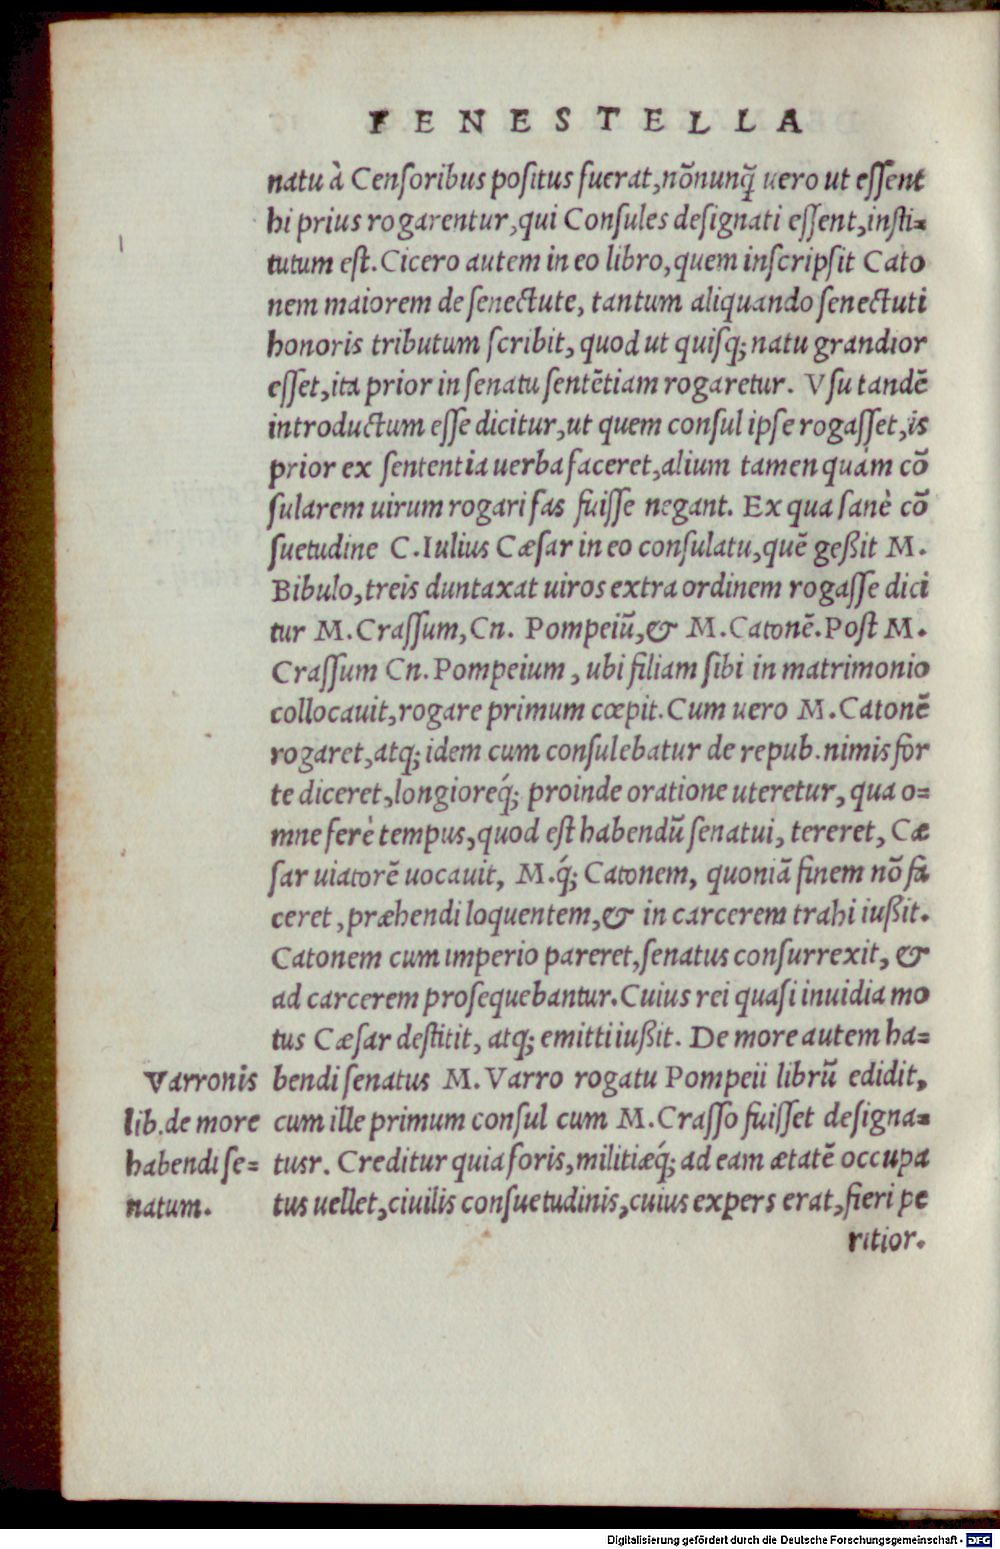 FENESTELLA
natu à Censoribus positus fuerat, nõnunq̃ uero ut essent
hi prius rogarentur, qui Consules designati essent, insti-
tutum est. Cicero autem in eo libro, quem inscripsit Cato
nem maiorem de senectute, tantum aliquando senectuti
honoris tributum scribit, quod ut quisq; natu grandior
esset, ita prior in senatu sentẽtiam rogaretur. Vsu tandẽ
introductum esse dicitur, ut quem consul ipse rogasset, is
prior ex sententia uerba faceret, alium tamen quàm cõ
sularem uirum rogari fas fuisse negant. Ex qua sanè cõ
suetudine C. Iulius Cæsar in eo consulatu, quẽ geßit M.
Bibulo, treis duntaxat uiros extra ordinem rogasse dici
tur M. Crassum, Cn. Pompeiũ, & M. Catonẽ. Post M.
Crassum Cn. Pompeium, ubi filiam sibi in matrimonio
collocauit, rogare primum cœpit. Cum uero M. Catonẽ
rogaret, atq; idem cum consulebatur de repub. nimis for
te diceret, longioreq́; proinde oratione uteretur, qua o-
mne ferè tempus, quod est habendũ senatui, tereret, Cæ
sar uiatorẽ uocauit, M.q́; Catonem, quoniã finem nõ fa
ceret, præhendi loquentem, & in carcerem trahi iußit.
Catonem cum imperio pareret, senatus consurrexit, &
ad carcerem prosequebantur. Cuius rei quasi inuidia mo
tus Cæsar destitit, atq; emitti iußit. De more autem ha-
bendi senatus M. Varro rogatu Pompeii librũ edidit,
cum ille primum consul cum M. Crasso fuisset designa-
tusr. Creditur quia foris, militiæq́; ad eam ætatẽ occupa
tus uellet, ciuilis consuetudinis, cuius expers erat, fieri pe
ritior.
Varronis
lib. de more
habendi se-
natum.
Digitalisierung gefördert durch die Deutsche Forschungsgemeinschaft - DFG